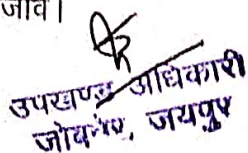 जावे।
उपखण्ड अधिकारी
जोबनेर, जयपुर